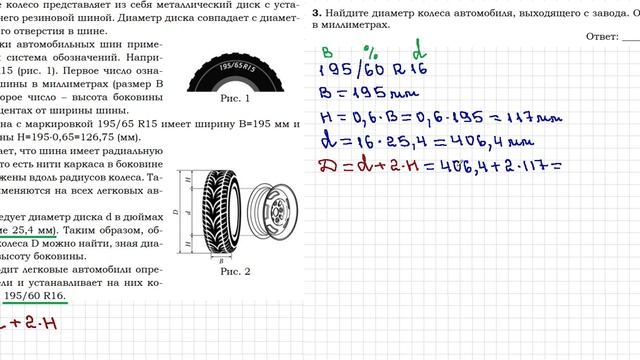 е колесо представляет из себя металлический диск с уста-
него резиновой шиной. Диаметр диска совпадает с диамет-
го отверстия в шине.
ки автомобильных шин приме-
я система обозначений. Напри-
R15 (рис. 1). Первое число озна-
шины в миллиметрах (размер B
орое число – высота боковины
центах от ширины шины.
на с маркировкой 195/65 R15 имеет ширину B=195 мм и
ны H=195·0,65=126,75 (мм).
ает, что шина имеет радиальную
то есть нити каркаса в боковине
жены вдоль радиусов колеса. Та-
именяются на всех легковых ав-
едует диаметр диска d в дюймах
ме 25,4 мм). Таким образом, об-
колеса D можно найти, зная диа-
высоту боковины.
одит легковые автомобили опре-
ели и устанавливает на них ко-
195/60 R16.
+ 2·H
195/65R15
Рис. 1
D
H
d
H
B
Рис. 2
3. Найдите диаметр колеса автомобиля, выходящего с завода. О
в миллиметрах.
Ответ:
B % d
195/60 R 16
B = 195 мм
H = 0,6·B = 0,6·195 = 117 мм
d = 16·25,4 = 406,4 мм
D = d + 2·H = 406,4 + 2·117 =